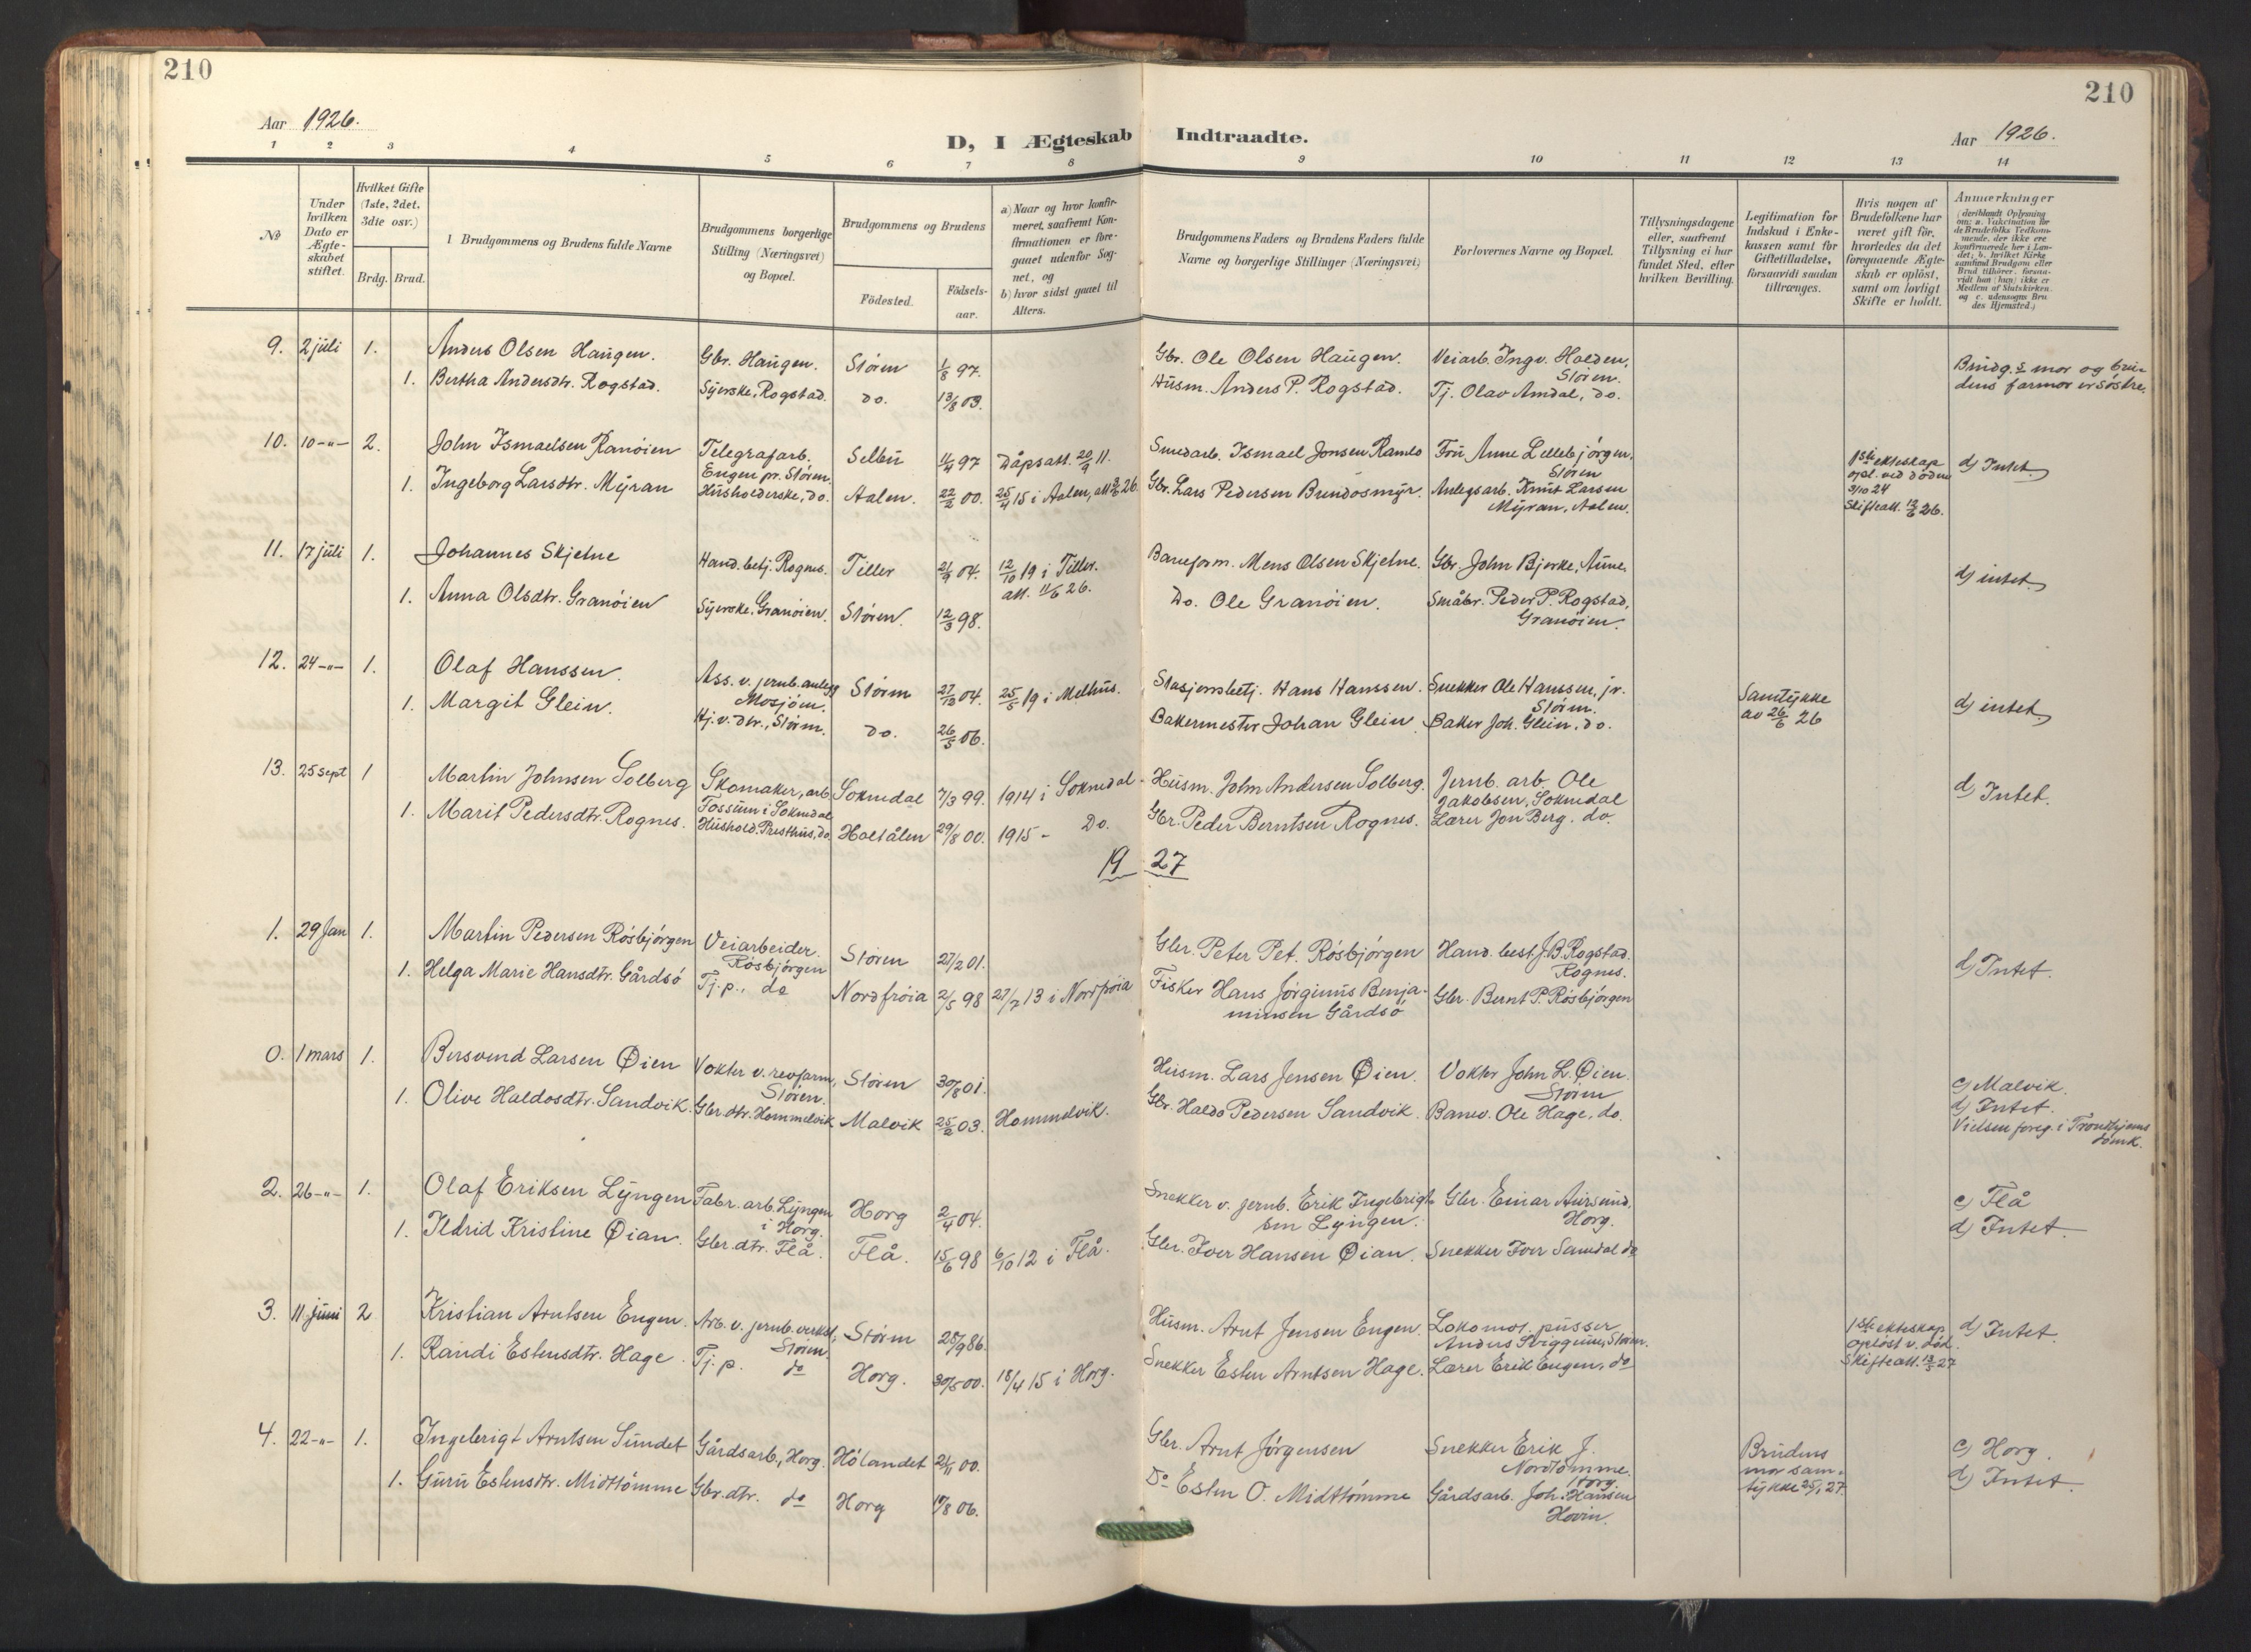 210
210
Aar 1926.
D, I Ægteskab Indtraadte.
Aar 1926.
1 2 3 4 5 6 7 8 9 10 11 12 13 14
No
Under hvilken Dato er Ægte-skabet stiftet.
Hvilket Gifte (1ste, 2det, 3die osv.)
Brdg. Brud.
1 Brudgommens og Brudens fulde Navne
Brudgommens borgerlige Stilling (Næringsvei) og Bopæl.
Brudgommens og Brudens
Födested.
Födsels-aar.
a) Naar og hvor konfir-meret, saafremt Kon-firmationen er fore-gaaet udenfor Sog-net, og
b) hvor sidst gaaet til Alters.
Brudgommens Faders og Brudens Faders fulde Navne og borgerlige Stillinger (Næringsvei)
Forlovernes Navne og Bopæl.
Tillysningsdagene eller, saafremt Tillysning ei har fundet Sted, efter hvilken Bevilling.
Legitimation for Indskud i Enke-kassen samt for Giftetilladelse, forsaavidt saadan tiltrænges.
Hvis nogen af Brudefolkene har været gift för, hvorledes da det foregaaende Ægte-skab er oplöst, samt om lovligt Skifte er holdt.
Anmærkninger
(deriblandt Oplysning om: a. Vakcination for de Brudefolks Vedkom-mende, der ikke ere konfirmerede her i Lan-det; b. hvilket Kirke-samfund Brudgom eller Brud tilhörer, forsaa-vidt han (hun) ikke er Medlem af Statskirken, og c. udensogns Bru-des Hjemsted.)
9. 2 juli 1. Anders Olsen Haugen. Gbr. Haugen. Stören 1/8 97. Gbr. Ole Olsen Haugen. Veiarb. Ingv. Halden, Stören. Brudg.s mor og bru-dens farmor er söstre.
1. Bertha Andersdtr. Rogstad. Syerske, Rogstad. do. 13/8 03. Husm. Anders P. Rogstad. Tj. Olav Amdal, do.
10. 10-"- 2. John Ismaelsen Ranöien Telegrafarb. Engen pr. Stören. Selbu 11/4 97 Dåpsatt. 20/9 11. Smedarb. Ismael Jonsen Ramlo Fru Anne Lillebjörgen, Stören 1ste ekteskap opl. ved döden 3/10 24 Skifteatt. 12/6 26. d) Intet
1. Ingeborg Larsdtr. Myran Husholderske, do. Aalen. 22/2 00. 25/4 15 i Aalen, att 26. Gbr. Lars Pedersen Bendosmyr. Anlegsarb. Knut Larsen Myran, Aalen.
11. 17 juli 1. Johannes Skjetne Hand.betj. Rognes. Tiller 21/9 04. 12/10 19 i Tiller. att. 11/6 26. Baneform. Mens Olsen Skjetne. Gbr. John Bjerke, Aune. d) intet
1. Anna Olsdtr. Granöien Syerske, Granöien. Stören. 12/3 98. Do. Ole Granöien. Småbr. Peder P. Rogstad, Granöien.
12. 24-"- 1. Olaf Hanssen. Ass. v. jernb.anlegg Mosjöen. Stören 27/12 04. 25/5 19 i Melhus. Stasjonsbetj. Hans Hanssen. Snekker Ole Hanssen, jr. Stören. Samtykke av 26/6 26 d) intet
1. Margit Glein. Hj.v. dtr., Stören. do. 26/5 06. Bakermester Johan Glein. Baker Joh. Glein, do.
13. 25 Sept 1 Martin Johnsen Solberg Skomaker, arb. Fossum i Soknedal Soknedal 7/3 99. 1914 i Soknedal Husm. John Andersen Solberg. Jernb. arb. Ole Jakobsen, Soknedal d) Intet.
1. Marit Pedersdtr. Rognes. Hushold. Presthus, do. Holtålen 29/8 00. 1915 - Do. Gbr. Peder Berntsen Rognes. Lærer Jon Berg. do.
1927
1. 29 Jan 1. Martin Pedersen Rösbjörgen Veiarbeider. Rösbjörgen Stören 27/2 01. Gbr. Peter Pet. Rösbjörgen Hand. best. J.B. Rogstad. Rognes. d) Intet.
1. Helga Marie Hansdtr. Gårdsö Tj.p., do Nordfröia 2/5 98 27/7 13 i Nordfröia Fisker Hans Jörginus Benja-minsen Gårdsö Gbr. Bernt P. Rösbjörgen
0. 1 mars 1. Bersvend Larsen Øien Vokter v. revfarm, Stören. Stören 30/8 01. Husm. Lars Jensen Øien. Vokter John L. Øien. Stören c) Malvik. d) Intet. Vielsen foreg. i Trondhjems domk.
1. Olive Haldosdtr. Sandvik. Gbr.dtr. Hommelvik Malvik 25/2 03. Hommelvik. Gbr. Haldo Pedersen Sandvik. Banev. Ole Hage, do.
2. 26-"- 1. Olaf Eriksen Lyngen Fabr. arb. Lyngen i Horg. Horg 2/4 04. Snekker v. jernb. Erik Ingebrigt-sen Lyngen. Gbr. Einar Aursund, Horg. c) Flå d) Intet.
1. Ildrid Kristine Øian. Gbr.dtr. Flå. Flå. 15/6 98 6/10 12 i Flå. Gbr. Iver Hansen Øian. Snekker Iver Samdal do
3. 11 juni 2 Kristian Arntsen Engen. Arb. v. jernb.verkst, Stören. Stören 25/9 86. Husm. Arnt Jensen Engen. Lokomot. pusser Anders Sviggum, Stören. 1ste ekteskap oplöst v. död. Skifteatt. 13/5 27 d) Intet.
1. Randi Estensdtr. Hage. Tj.p. do Horg. 30/5 00. 18/4 15 i Horg. Snekker Esten Arntsen Hage. Lærer Erik Engen, do
4. 22-"- 1. Ingebrigt Arntsen Sundet Gårdsarb., Horg. Hölandet 21/11 00. Gbr. Arnt Jörgensen Snekker Erik J. Nordtömme. Horg. Brudens mor sam-tykke 25/1 27. c) Horg. d) Intet.
1. Guru Estensdtr. Midttömme Gbr.dtr. do Horg 17/8 06. Do Esten O. Midttömme Gårdsarb. Joh. Hansen Hovin.